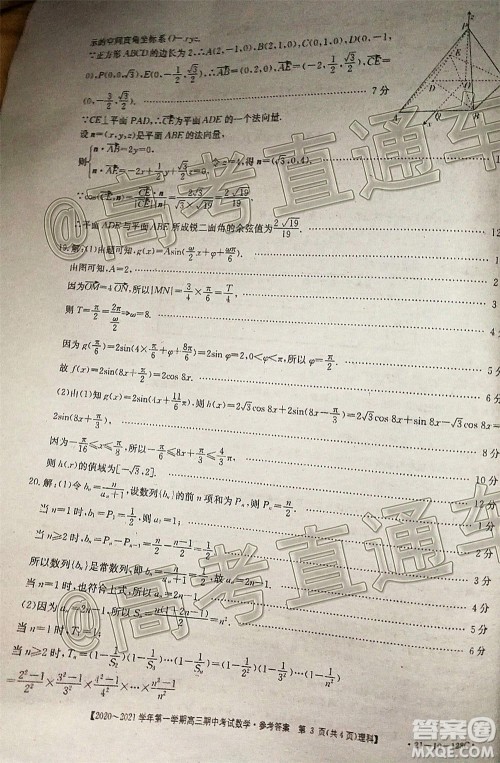 示的空间直角坐标系O-xyz.
∵正方形ABCD的边长为2,∴A(2,-1,0),B(2,1,0),C(0,1,0),D(0,-1,
0),P(0,0,√3),E(0,-1/2,√3/2),∴AB=(0,2,0),AE=(-2,1/2,√3/2),CE=
(0,-3/2,√3/2). 7分
∵CE⊥平面PAD,∴CE为平面ADE的一个法向量.
设n=(x,y,z)是平面ABE的法向量,
则{n·AB=2y=0, n·AE=-2x+1/2y+√3/2z=0, 令z=4,得n=(√3,0,4).
∴平面ADE与平面ABE所成锐二面角的余弦值为2√19/19. 12
19.解:(1)由题可知,g(x)=Asin(ω/2x+φ+ωπ/6).
由图可知,A=2,
因为OM=4ON,所以|MN|=3/4×π/6=T/4,
则T=π/2=2π/(ω/2)⇒ω=8. 4分
因为g(π/6)=2sin(4×π/6+φ+8π/6)=2sinφ=2,0<φ<π,所以φ=π/2. 5分
故f(x)=2sin(8x+π/2)=2cos 8x. 6分
(2)由(1)知g(x)=2sin(4x+11/6π),则h(x)=2√3cos 8x+2sin(8x-π/6)=2√3cos 8x+√3sin 8x-cos
2sin(8x+π/3), 8分
因为-π/16≤x≤π/8,所以-π/6≤8x+π/3≤4π/3, 10分
则h(x)的值域为[-√3,2]. 12分
20.解:(1)令bₙ=n/(aₙ+1),设数列{bₙ}的前n项和为Pₙ,则Pₙ=n/2.
当n=1时,b₁=P₁=1/2,
当n≥2时,bₙ=Pₙ-Pₙ₋₁=n/2-(n-1)/2=1/2,
所以数列{bₙ}是常数列,即bₙ=n/(aₙ+1)=1/2,故aₙ=2n-1.
当n=1时,也符合上式,所以aₙ=2n-1. 5分
(2)因为aₙ=2n-1,所以Sₙ=n(1+2n-1)/2=n². 6分
当n=1时,T₁
当n≥2时,Tₙ=(1-1/S₂)(1-1/S₃)(1-1/S₄)…(1-1/Sₙ)=(1-1/2²)(1-1/3²)(1-1/4²)…(1-1/n²)
=(2²-1)/2²×(3²-1)/3²×(4²-1)/4²×…×(n²-1)/n²
【2020~2021学年第一学期高三期中考试数学·参考答案 第3页(共4页)理科】
@高考直通车
@高考直通车
@高考直通车
答案圈
MXQE.COM